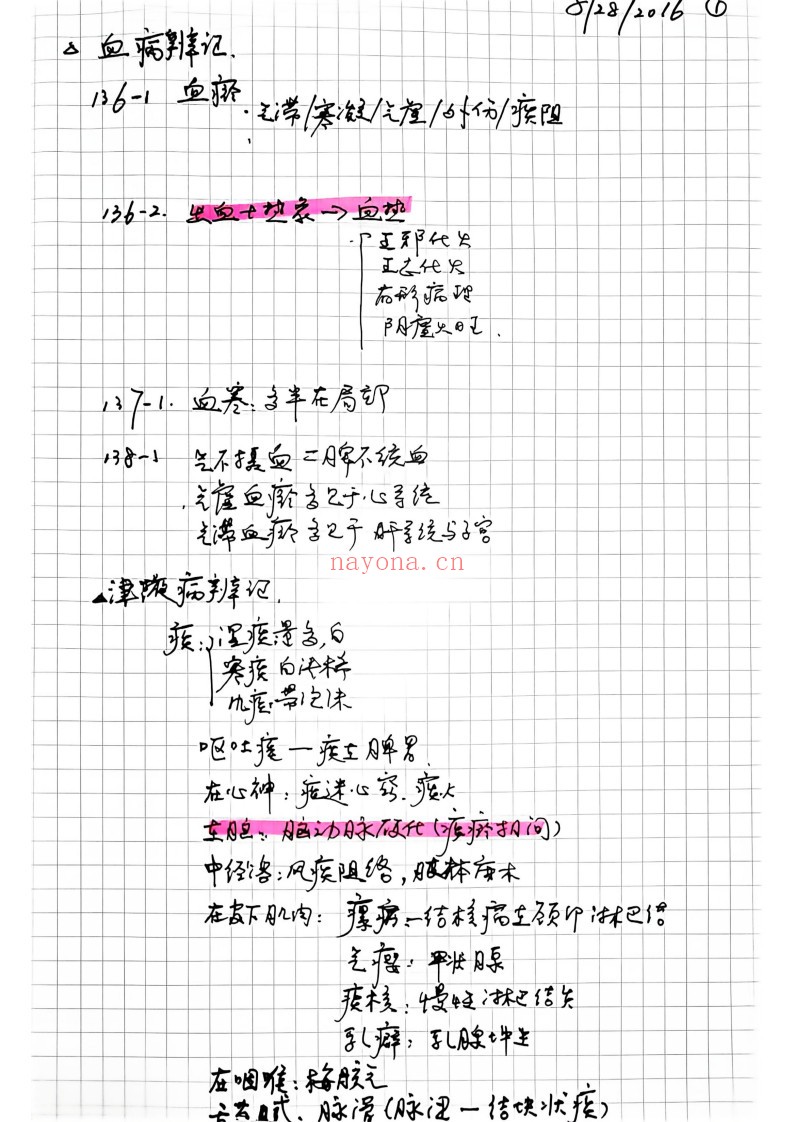 8/28/2016 ①
△ 血病辨记.
136-1 血瘀
·气滞/寒凝/气虚/外伤/痰阻
136-2. 出血+热象→血热
五邪化火
五志化火
有形病理
阴虚火旺.
137-1. 血寒: 多半在局部
138-1 气不摄血=脾不统血
气虚血瘀多见于心系统
气滞血瘀多见于肝系统与子宫
nayona.cn
▲津液病辨记.
痰: 湿痰量多,白
寒痰白清稀
风痰带泡沫
呕吐痰—痰在脾胃.
在心神: 痰迷心窍. 痰火
在脑: 脑动脉硬化(痰瘀相间)
中经络: 风痰阻络, 肢体麻木
在皮下肌肉: 瘰疬—结核病在颈部淋巴结
气瘿: 甲状腺
痰核: 慢性淋巴结炎
乳癖: 乳腺增生
在咽喉: 梅核气
舌苔腻. 脉滑(脉涩—结块状痰)